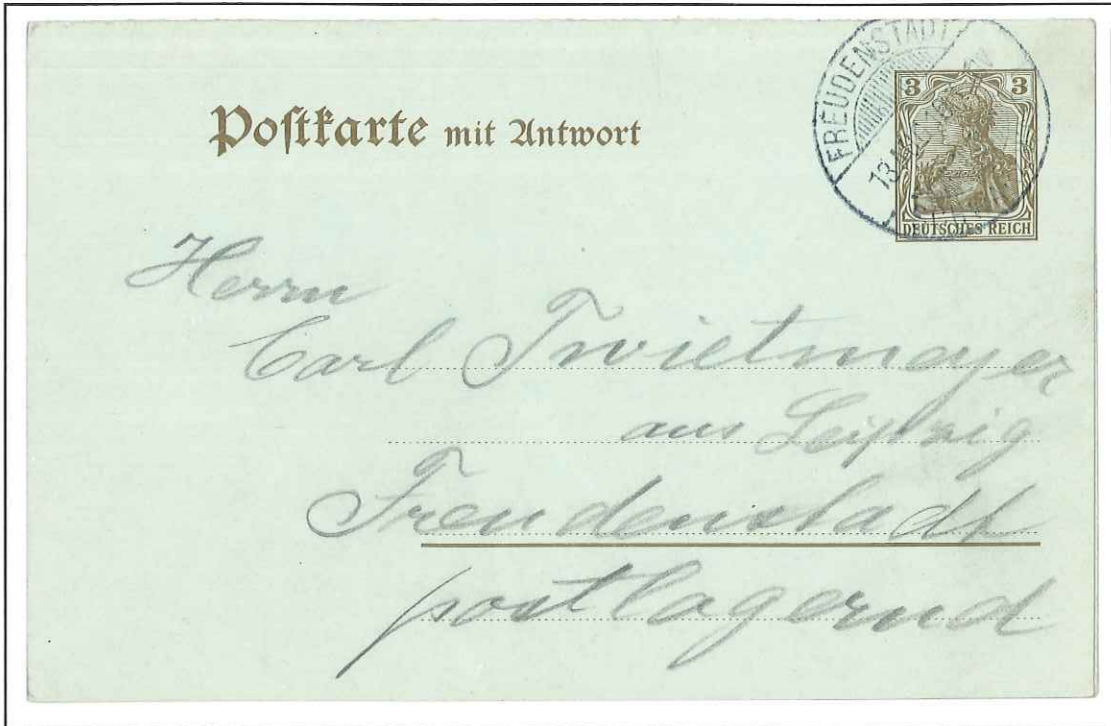 Postkarte mit Antwort
FREUDENSTADT
3 3
DEUTSCHES REICH
Herrn
Carl Twietmeyer
aus Leipzig
Freudenstadt
postlagernd